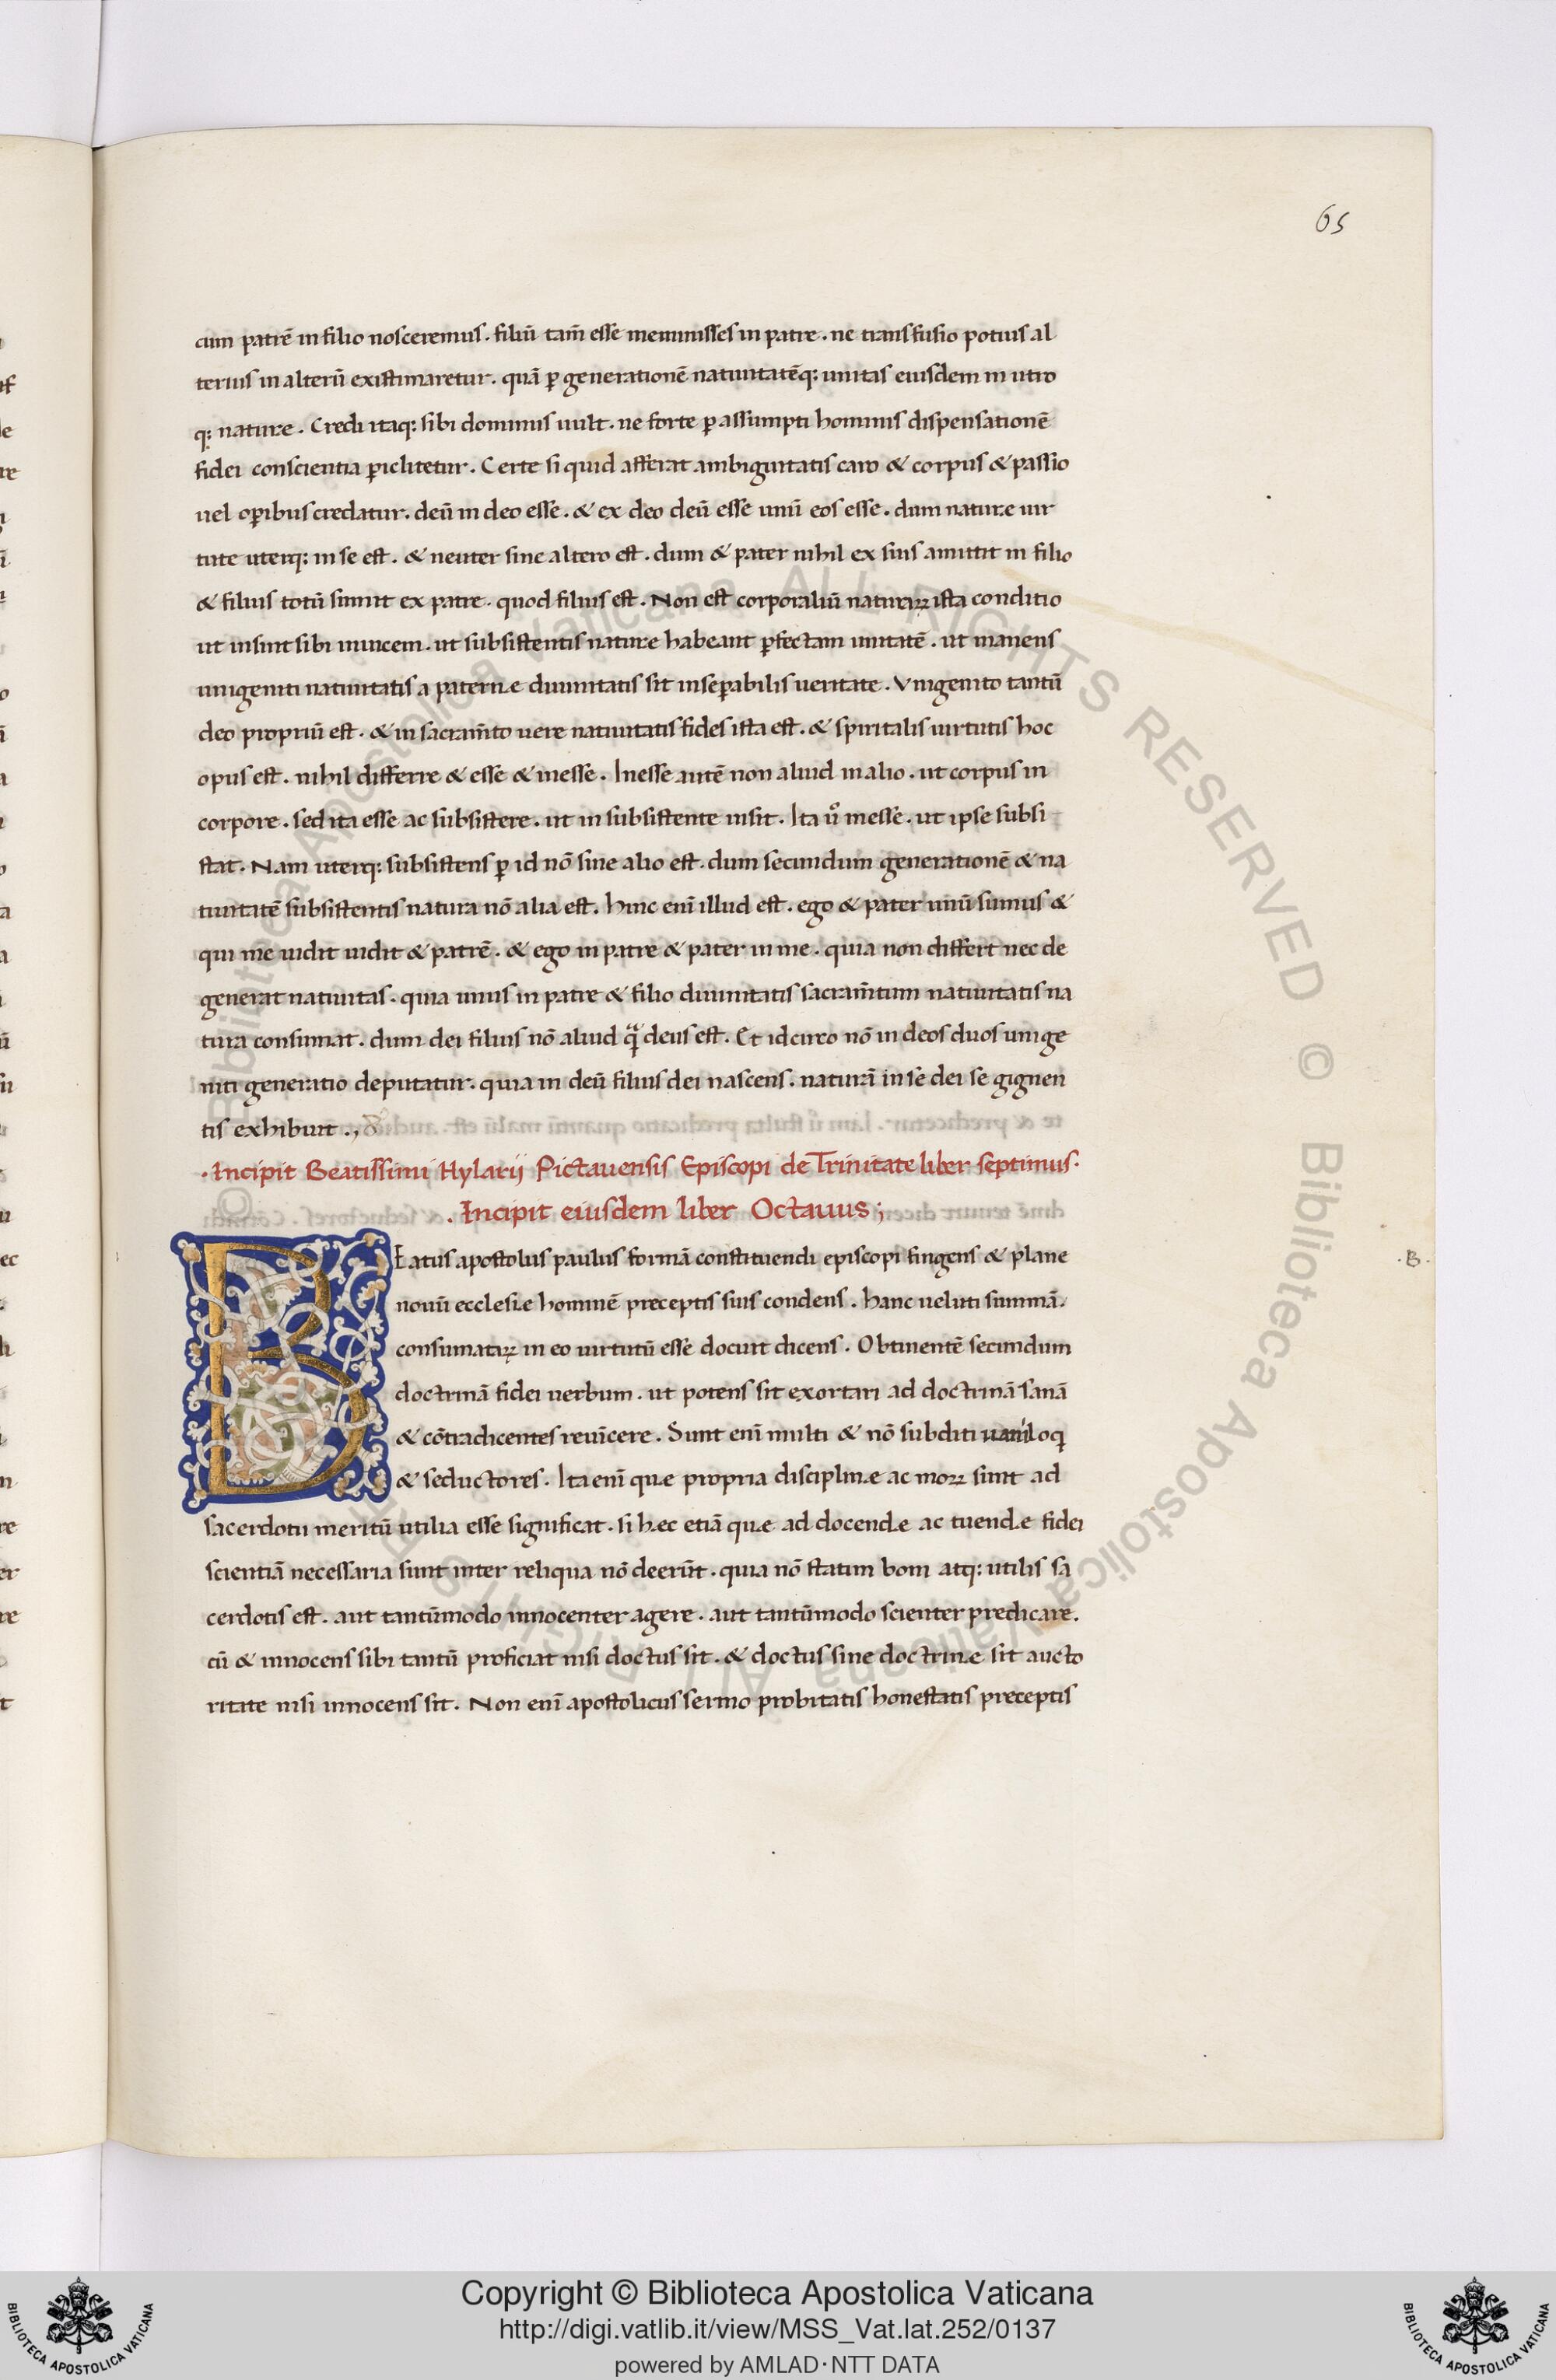 65
cum patrē in filio nosceremus. filiū tam̄ esse meminisses in patre. ne transfusio potius al
terius in alterū existimaretur. quā ꝑ generationē natiuitatēq; unitas eiusdem in utro
q; nature. Credi itaq; sibi dominus uult. ne forte ꝑ assumpti hominis dispensationē
fidei conscientia ꝑiclitetur. Certe si quid afferat ambiguitatis caro & corpus & passio
uel oꝑibus credatur. deū in deo esse. & ex deo deū esse unū eos esse. dum naturæ uir
tute uterq; in se est. & neuter sine altero est. dum & pater nihil ex suis amittit in filio
& filius totū sumit ex patre. quod filius est. Non est corporaliū naturaꝝ ista conditio
ut insint sibi inuicem. ut subsistentis naturæ habeant ꝑfectam unitatē. ut manens
unigeniti natiuitatis a paternæ diuinitatis sit inseꝑabilis ueritate. Vnigenito tantū
deo propriū est. & in sacram̄to uere natiuitatis fides ista est. & spiritalis uirtutis hoc
opus est. nihil differre & esse & inesse. Inesse autē non aliud in alio. ut corpus in
corpore. sed ita esse ac subsistere. ut in subsistente insit. Ita ůo inesse. ut ipse subsi
stat. Nam uterq; subsistens ꝑ id nō sine alio est. dum secundum generationē & na
tiuitatē subsistentis natura nō alia est. Hinc enī illud est. ego & pater unū sumus &
qui me uidit uidit & patrē. & ego in patre & pater in me. quia non differt nec de
generat natiuitas. quia unius in patre & filio diuinitatis sacram̄tum natiuitatis na
tura consumat. dum dei filius nō aliud qͣ deus est. Et idcirco nō in deos duos unige
niti generatio deputatur. quia in deū filius dei nascens. naturā in se dei se gignen
tis exhibuit.,
.Incipit Beatissimi Hylarij Pictauensis Episcopi de Trinitate liber septimus.
.Incipit eiusdem liber Octauus;
BEatus apostolus paulus formā constituendi episcopi fingens & plane
.B.
nouū ecclesiæ hominē preceptis suis condens. hanc ueluti summā.
consumatiꝝ in eo uirtutū esse docuit dicens. Obtinentē secundum
doctrinā fidei uerbum. ut potens sit exortari ad doctrinā sanā
& cōtradicentes reuīcere. Sunt enī multi & nō subditi uaniloq
& seductores. Ita enī quæ propria disciplinæ ac moꝝ sunt ad
sacerdotii meritū utilia esse significat. si hæc etiā quæ ad docendæ ac tuendæ fidei
scientiā necessaria sunt inter reliqua nō deerūt. quia nō statim boni atq; utilis sa
cerdotis est. aut tantūmodo innocenter agere. aut tantūmodo scienter predicare.
cū & innocens sibi tantū proficiat nisi doctus sit. & doctus sine doctrinæ sit aucto
ritate nisi innocens sit. Non enī apostolicus sermo probitatis honestatis preceptis
© Biblioteca Apostolica Vaticana ALL RIGHTS RESERVED
Copyright © Biblioteca Apostolica Vaticana
http://digi.vatlib.it/view/MSS_Vat.lat.252/0137
powered by AMLAD·NTT DATA
BIBLIOTECA APOSTOLICA VATICANA
BIBLIOTECA APOSTOLICA VATICANA